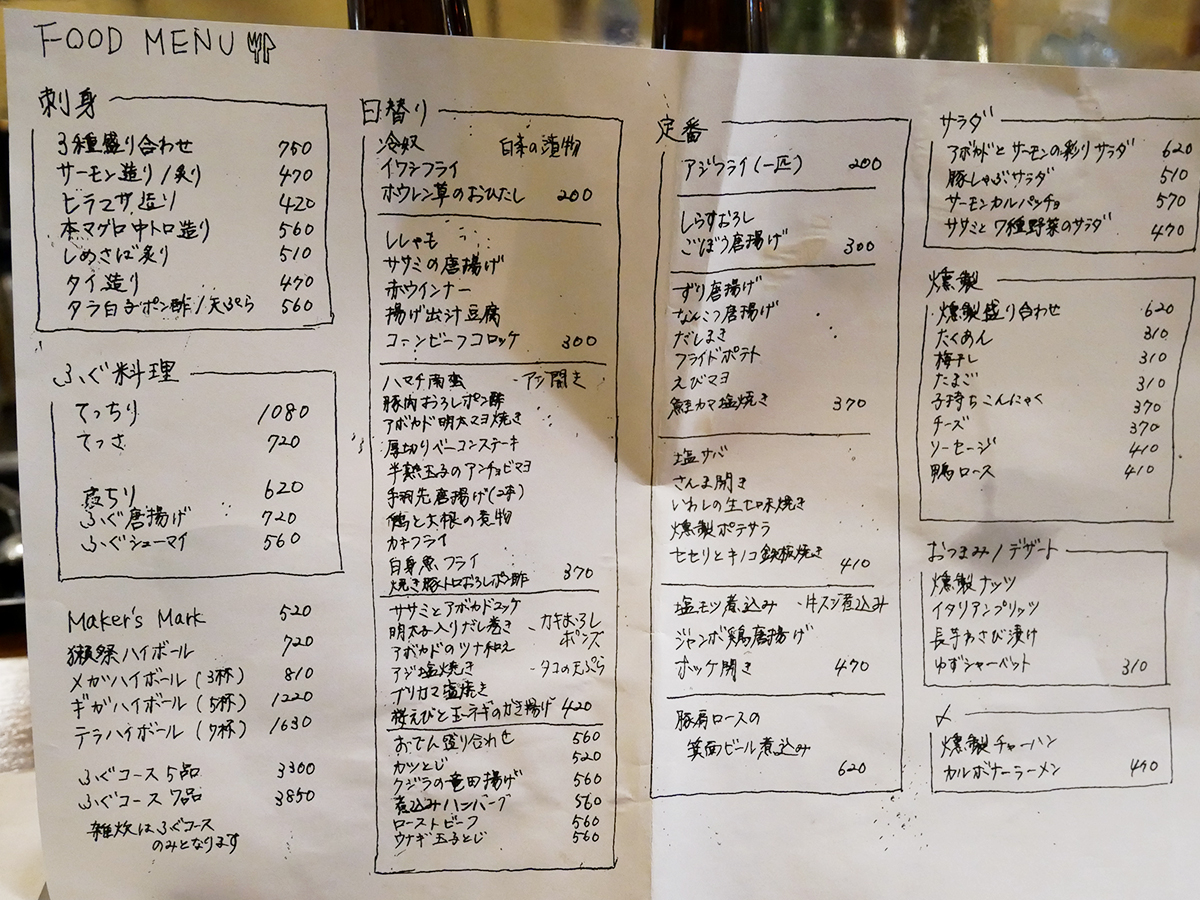 FOOD MENU
刺身
3種盛り合わせ 750
サーモン造り/炙り 470
ヒラマサ造り 420
本マグロ中トロ造り 560
しめさば炙り 510
タイ造り 470
タラ白子ポン酢/天ぷら 560
ふぐ料理
てっちり 1080
てっさ 720
煮ちり 620
ふぐ唐揚げ 720
ふぐシューマイ 560
Maker's Mark 520
獺祭ハイボール 720
メガハイボール (3杯) 810
ギガハイボール (5杯) 1220
テラハイボール (7杯) 1630
ふぐコース 5品 3300
ふぐコース 7品 3850
雑炊はふぐコース
のみとなります
日替り
冷奴 白菜の漬物
イワシフライ
ホウレン草のおひたし 200
ししゃも
ササミの唐揚げ
赤ウインナー
揚げ出汁豆腐
コーンビーフコロッケ 300
ハマチ南蛮 ・アジ開き
豚肉おろしポン酢
アボカド明太マヨ焼き
厚切りベーコンステーキ
半熟玉子のアンチョビマヨ
手羽先唐揚げ(2本)
鶏と大根の煮物
カキフライ
白身魚フライ
焼き豚トロおろしポン酢 370
ササミとアボカドユッケ
明太子入りだし巻き -カキおろしポンズ
アボカドのツナ和え
アジ塩焼き -タコの天ぷら
ブリカマ塩焼き
桜えびと玉ネギのかき揚げ 420
おでん盛り合わせ 560
カツとじ 520
クジラの竜田揚げ 560
煮込みハンバーグ 560
ローストビーフ 560
ウナギ玉子とじ 560
定番
アジフライ(一匹) 200
しらすおろし
ごぼう唐揚げ 300
ずり唐揚げ
なんこつ唐揚げ
だしまき
フライドポテト
えびマヨ
鮭カマ塩焼き 370
塩サバ
さんま開き
いわしの生七味焼き
燻製ポテサラ
セセリとキノコ鉄板焼き 410
塩モツ煮込み -牛スジ煮込み
ジャンボ鶏唐揚げ
ホッケ開き 470
豚肩ロースの
箕面ビール煮込み 620
サラダ
アボカドとサーモンの彩りサラダ 620
豚しゃぶサラダ 510
サーモンカルパッチョ 570
ササミと7種野菜のサラダ 470
燻製
燻製盛り合わせ 620
たくあん 310
梅干し 310
たまご 310
子持ちこんにゃく 370
チーズ 370
ソーセージ 410
鴨ロース 410
おつまみ/デザート
燻製ナッツ
イタリアンプリッツ
長芋わさび漬け
ゆずシャーベット 310
〆
燻製チャーハン
カルボナーラーメン 470